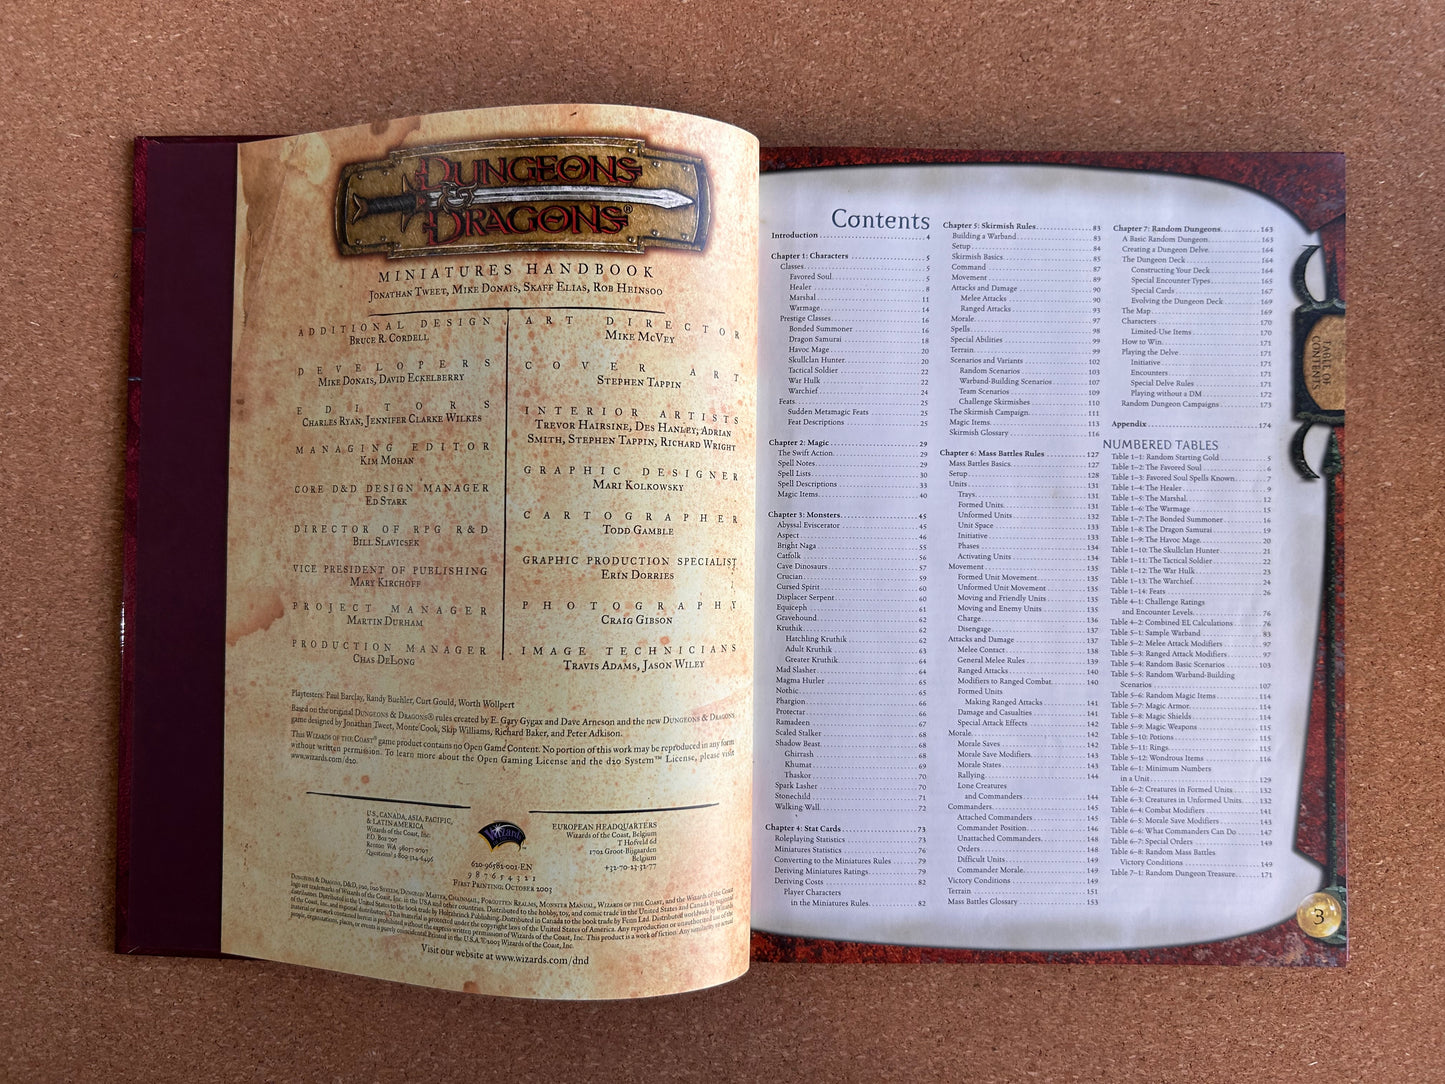 DUNGEONS
&
DRAGONS®
MINIATURES HANDBOOK
JONATHAN TWEET, MIKE DONAIS, SKAFF ELIAS, ROB HEINSOO
ADDITIONAL DESIGN
BRUCE R. CORDELL
DEVELOPERS
MIKE DONAIS, DAVID ECKELBERRY
EDITORS
CHARLES RYAN, JENNIFER CLARKE WILKES
MANAGING EDITOR
KIM MOHAN
CORE D&D DESIGN MANAGER
ED STARK
DIRECTOR OF RPG R&D
BILL SLAVICSEK
VICE PRESIDENT OF PUBLISHING
MARY KIRCHOFF
PROJECT MANAGER
MARTIN DURHAM
PRODUCTION MANAGER
CHAS DELONG
ART DIRECTOR
MIKE MCVEY
COVER ART
STEPHEN TAPPIN
INTERIOR ARTISTS
TREVOR HAIRSINE, DES HANLEY, ADRIAN
SMITH, STEPHEN TAPPIN, RICHARD WRIGHT
GRAPHIC DESIGNER
MARI KOLKOWSKY
CARTOGRAPHER
TODD GAMBLE
GRAPHIC PRODUCTION SPECIALIST
ERIN DORRIES
PHOTOGRAPHY
CRAIG GIBSON
IMAGE TECHNICIANS
TRAVIS ADAMS, JASON WILEY
Playtesters: Paul Barclay, Randy Buehler, Curt Gould, Worth Wollpert
Based on the original DUNGEONS & DRAGONS® rules created by E. Gary Gygax and Dave Arneson and the new DUNGEONS & DRAGONS
game designed by Jonathan Tweet, Monte Cook, Skip Williams, Richard Baker, and Peter Adkison.
This WIZARDS OF THE COAST® game product contains no Open Game Content. No portion of this work may be reproduced in any form
without written permission. To learn more about the Open Gaming License and the d20 System™ License, please visit
www.wizards.com/d20.
U.S., CANADA, ASIA, PACIFIC,
& LATIN AMERICA
Wizards of the Coast, Inc.
P.O. Box 707
Renton WA 98057-0707
Questions? 1-800-324-6496
Wizards
620-96582-001-EN
9 8 7 6 5 4 3 2 1
FIRST PRINTING: OCTOBER 2003
EUROPEAN HEADQUARTERS
Wizards of the Coast, Belgium
T Hofveld 6d
1702 Groot-Bijgaarden
Belgium
+32-70-23-32-77
DUNGEONS & DRAGONS, D&D, d20, d20 SYSTEM, DUNGEON MASTER, CHAINMAIL, FORGOTTEN REALMS, MONSTER MANUAL, WIZARDS OF THE COAST, and the Wizards of the Coast
logo are trademarks of Wizards of the Coast, Inc. in the USA and other countries. Distributed to the hobby, toy, and comic trade in the United States and Canada by regional
distributors. Distributed in the United States to the book trade by Holtzbrinck Publishing. Distributed in Canada to the book trade by Fenn Ltd. Distributed worldwide by Wizards
of the Coast, Inc. and regional distributors. This material is protected under the copyright laws of the United States of America. Any reproduction or unauthorized use of the
material or artwork contained herein is prohibited without the express written permission of Wizards of the Coast, Inc. This product is a work of fiction. Any similarity to actual
people, organizations, places, or events is purely coincidental. Printed in the U.S.A. ©2003 Wizards of the Coast, Inc.
Visit our website at www.wizards.com/dnd
Contents
Introduction 4
Chapter 1: Characters 5
Classes 5
Favored Soul 5
Healer 8
Marshal 11
Warmage 14
Prestige Classes 16
Bonded Summoner 16
Dragon Samurai 18
Havoc Mage 20
Skullclan Hunter 20
Tactical Soldier 22
War Hulk 22
Warchief 24
Feats 25
Sudden Metamagic Feats 25
Feat Descriptions 25
Chapter 2: Magic 29
The Swift Action 29
Spell Notes 29
Spell Lists 30
Spell Descriptions 33
Magic Items 40
Chapter 3: Monsters 45
Abyssal Eviscerator 45
Aspect 46
Bright Naga 55
Catfolk 56
Cave Dinosaurs 57
Crucian 59
Cursed Spirit 60
Displacer Serpent 60
Equiceph 61
Gravehound 62
Kruthik 62
Hatchling Kruthik 62
Adult Kruthik 63
Greater Kruthik 64
Mad Slasher 64
Magma Hurler 65
Nothic 65
Phargion 66
Protectar 66
Ramadeen 67
Scaled Stalker 68
Shadow Beast 68
Ghirrash 68
Khumat 69
Thaskor 70
Spark Lasher 70
Stonechild 71
Walking Wall 72
Chapter 4: Stat Cards 73
Roleplaying Statistics 73
Miniatures Statistics 76
Converting to the Miniatures Rules 79
Deriving Miniatures Ratings 79
Deriving Costs 82
Player Characters
in the Miniatures Rules 82
Chapter 5: Skirmish Rules 83
Building a Warband 83
Setup 84
Skirmish Basics 85
Command 87
Movement 89
Attacks and Damage 90
Melee Attacks 90
Ranged Attacks 93
Morale 97
Spells 98
Special Abilities 99
Terrain 99
Scenarios and Variants 102
Random Scenarios 103
Warband-Building Scenarios 107
Team Scenarios 109
Challenge Skirmishes 110
The Skirmish Campaign 111
Magic Items 113
Skirmish Glossary 116
Chapter 6: Mass Battles Rules 127
Mass Battles Basics 127
Setup 128
Units 131
Trays 131
Formed Units 131
Unformed Units 132
Unit Space 133
Initiative 133
Phases 134
Activating Units 134
Movement 135
Formed Unit Movement 135
Unformed Unit Movement 135
Moving and Friendly Units 135
Moving and Enemy Units 135
Charge 136
Disengage 137
Attacks and Damage 137
Melee Contact 138
General Melee Rules 139
Ranged Attacks 140
Modifiers to Ranged Combat 140
Formed Units
Making Ranged Attacks 141
Damage and Casualties 141
Special Attack Effects 142
Morale 142
Morale Saves 142
Morale Save Modifiers 143
Morale States 143
Rallying 144
Lone Creatures
and Commanders 144
Commanders 145
Attached Commanders 145
Commander Position 146
Unattached Commanders 148
Orders 148
Difficult Units 149
Commander Morale 149
Victory Conditions 149
Terrain 151
Mass Battles Glossary 153
Chapter 7: Random Dungeons 163
A Basic Random Dungeon 163
Creating a Dungeon Delve 164
The Dungeon Deck 164
Constructing Your Deck 164
Special Encounter Types 165
Special Cards 167
Evolving the Dungeon Deck 169
The Map 169
Characters 170
Limited-Use Items 170
How to Win 171
Playing the Delve 171
Initiative 171
Encounters 171
Special Delve Rules 171
Playing without a DM 172
Random Dungeon Campaigns 173
Appendix 174
NUMBERED TABLES
Table 1–1: Random Starting Gold 5
Table 1–2: The Favored Soul 6
Table 1–3: Favored Soul Spells Known 7
Table 1–4: The Healer 9
Table 1–5: The Marshal 12
Table 1–6: The Warmage 15
Table 1–7: The Bonded Summoner 16
Table 1–8: The Dragon Samurai 19
Table 1–9: The Havoc Mage 20
Table 1–10: The Skullclan Hunter 21
Table 1–11: The Tactical Soldier 22
Table 1–12: The War Hulk 23
Table 1–13: The Warchief 24
Table 1–14: Feats 26
Table 4–1: Challenge Ratings
and Encounter Levels 76
Table 4–2: Combined EL Calculations 76
Table 5–1: Sample Warband 83
Table 5–2: Melee Attack Modifiers 97
Table 5–3: Ranged Attack Modifiers 97
Table 5–4: Random Basic Scenarios 103
Table 5–5: Random Warband-Building
Scenarios 107
Table 5–6: Random Magic Items 114
Table 5–7: Magic Armor 114
Table 5–8: Magic Shields 114
Table 5–9: Magic Weapons 115
Table 5–10: Potions 115
Table 5–11: Rings 115
Table 5–12: Wondrous Items 116
Table 6–1: Minimum Numbers
in a Unit 129
Table 6–2: Creatures in Formed Units 132
Table 6–3: Creatures in Unformed Units 132
Table 6–4: Combat Modifiers 141
Table 6–5: Morale Save Modifiers 143
Table 6–6: What Commanders Can Do 147
Table 6–7: Special Orders 149
Table 6–8: Random Mass Battles
Victory Conditions 149
Table 7–1: Random Dungeon Treasure 171
TABLE OF
CONTENTS
3